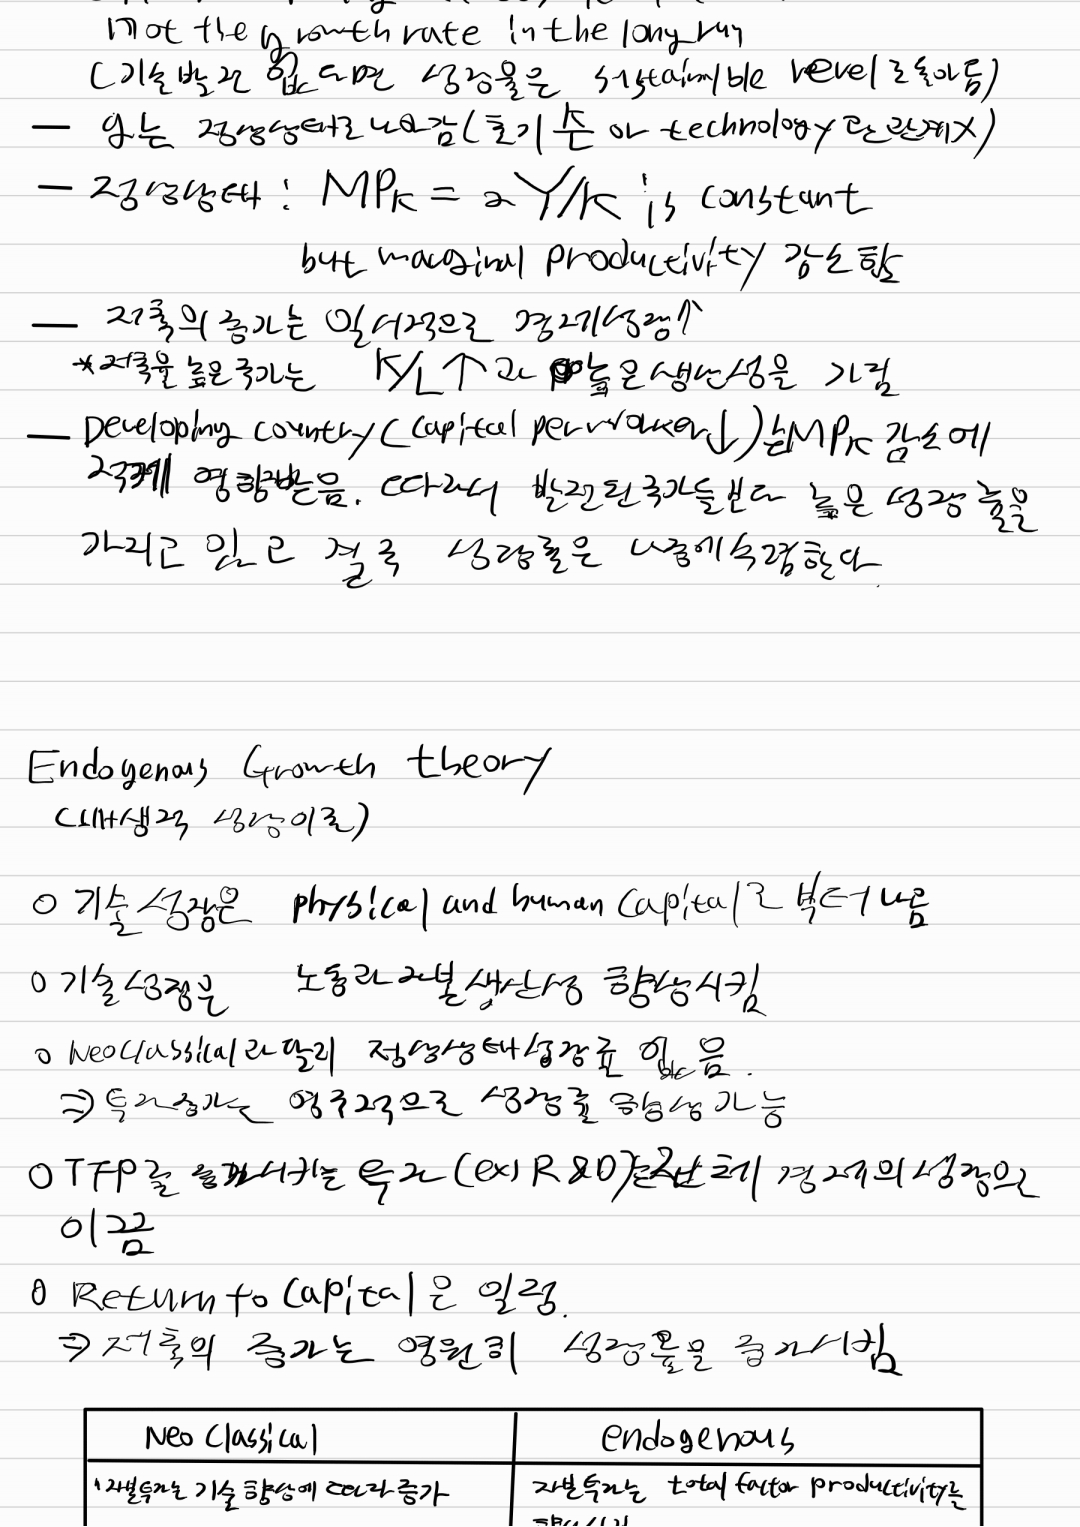 not the growth rate in the long run
(기술발전 없다면 성장율은 sustainable level로 돌아옴)
정상상태로 나아감(초기 수준 or technology 관계X)
- 정상상태 : MPK = αY/K is constant
but marginal productivity 감소함
- 저축의 증가는 일시적으로 경제성장↑
*저축율 높은 국가는 K/L↑과 높은 생산성을 가짐
- Developing country(capital per worker↓)는 MPK 감소에
적게 영향받음. 따라서 발전된국가들보다 높은 성장율을
가지고 있고 결국 성장률은 나중에 수렴한다.
Endogenous Growth theory
(내생적 성장이론)
○ 기술성장은 physical and human capital로 부터 나옴
○ 기술성장은 노동과 자본생산성 향상시킴
○ Neoclassical과 달리 정상상태성장률 없음.
⇒ 투자증가는 영구적으로 성장률 향상가능
○ TFP를 증가시키는 투자(ex) R&D)는 전체 경제의 성장으로
이끔
○ Return to capital은 일정.
⇒ 저축의 증가는 영원히 성장률을 증가시킴
Neo Classical endogenous
자본투자는 기술향상에 따라 증가 자본투자는 total factor productivity를